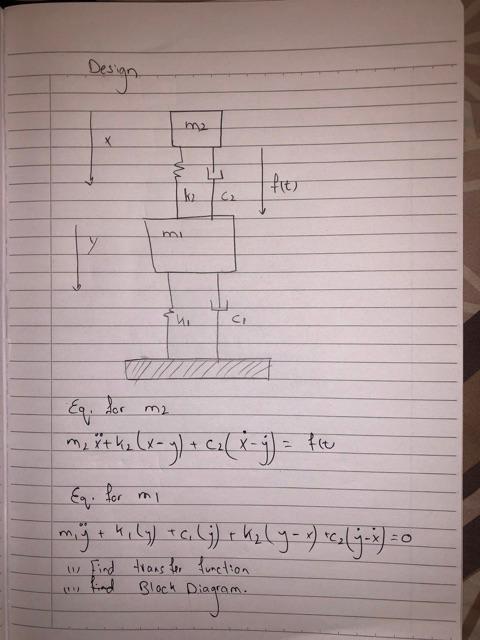 Design
m2
x
k2
c2
f(t)
m1
y
k1
c1
Eq. for m2
m2 ẍ + k2 (x-y) + c2 (ẋ - ẏ) = f(t
Eq. for m1
m1 ÿ + k1(y) + c1(ẏ) + k2 (y-x) + c2(ẏ-ẋ) = 0
(i) Find transfer function
(ii) find Block Diagram.